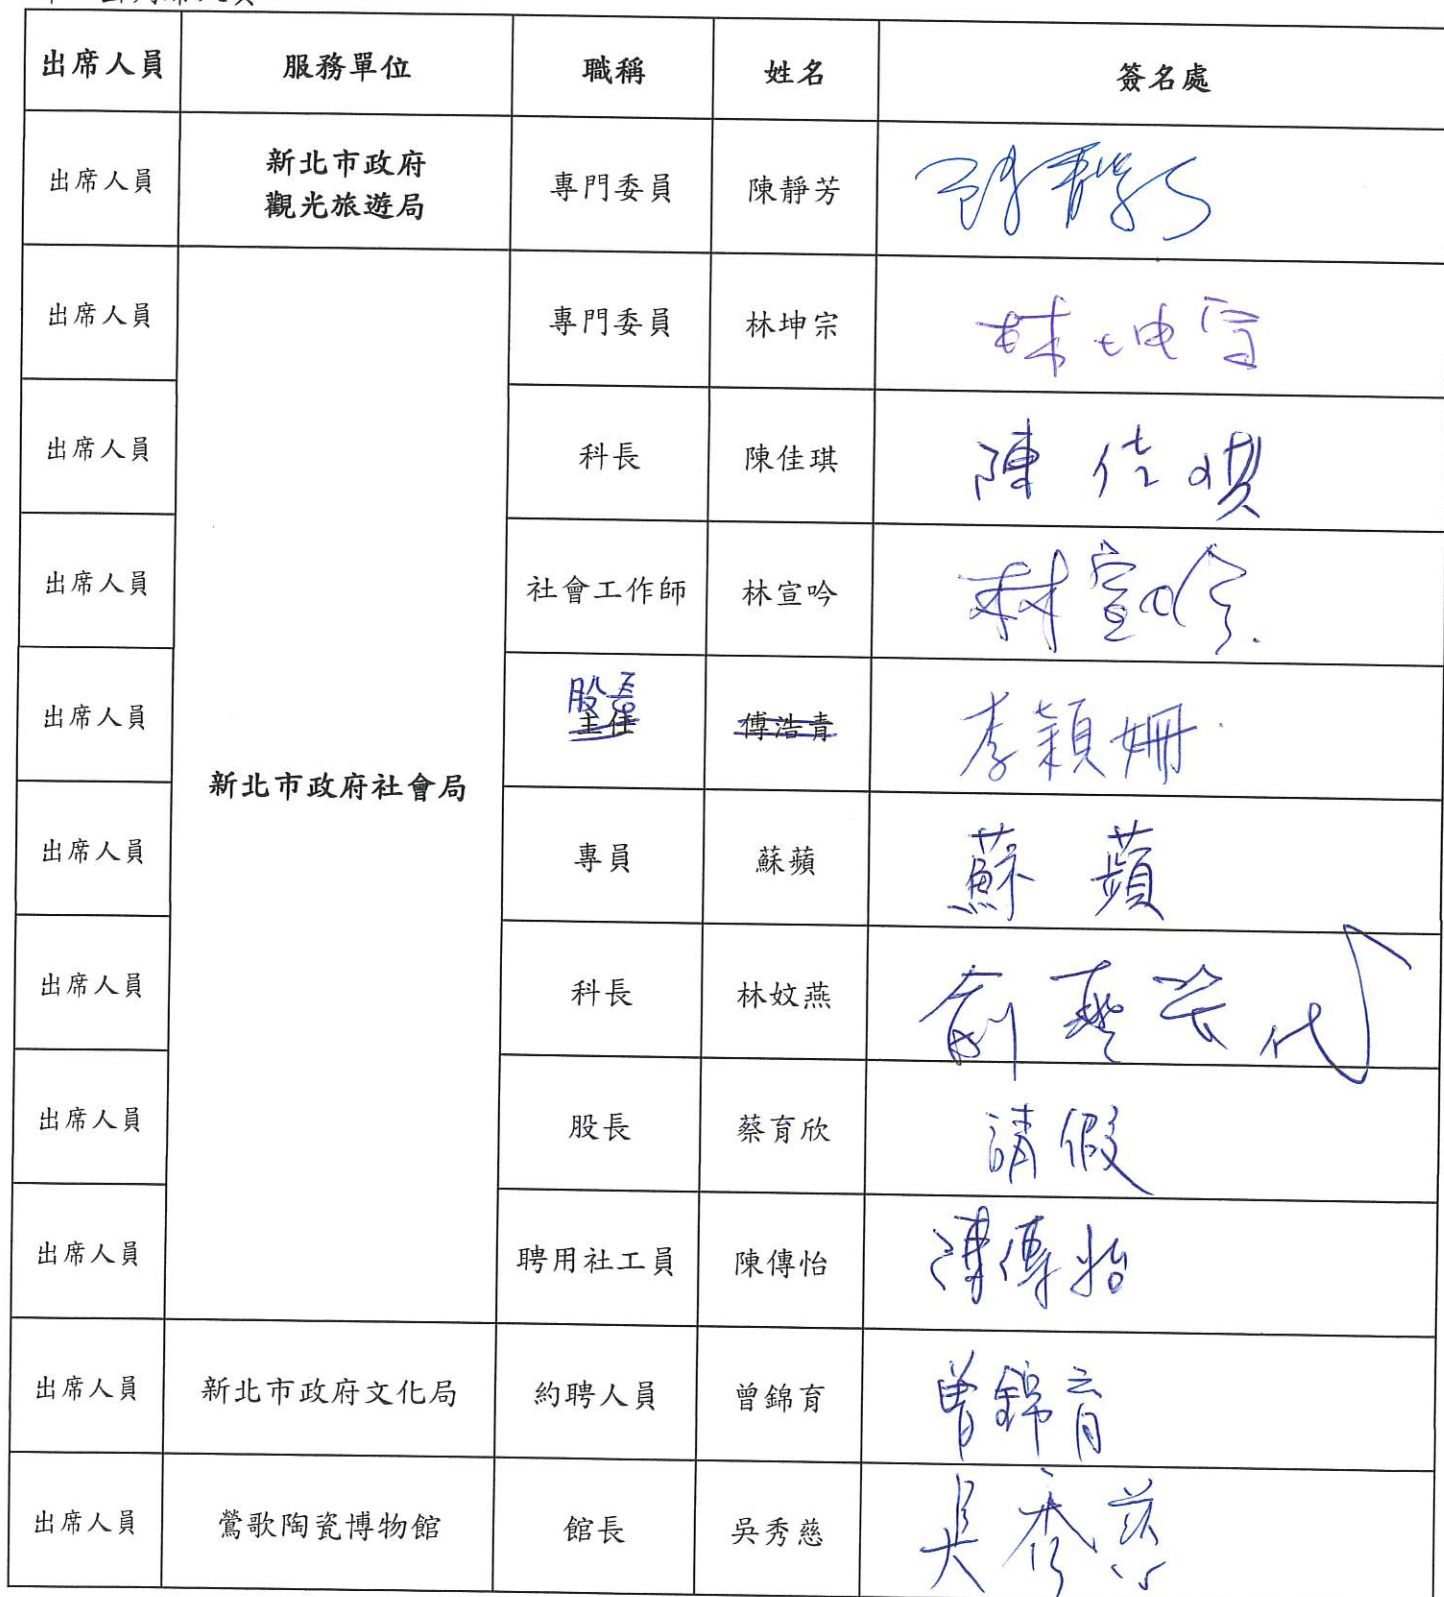 出席人員 服務單位 職稱 姓名 簽名處
出席人員 新北市政府 觀光旅遊局 專門委員 陳靜芳 陳靜芳
出席人員 專門委員 林坤宗 林坤宗
出席人員 科長 陳佳琪 陳佳琪
出席人員 社會工作師 林宣吟 林宣吟
出席人員 新北市政府社會局 股長 主任 傅浩青 李穎姍
出席人員 專員 蘇蘋 蘇蘋
出席人員 科長 林妏燕 代
出席人員 股長 蔡育欣 請假
出席人員 聘用社工員 陳傳怡 陳傳怡
出席人員 新北市政府文化局 約聘人員 曾錦育 曾錦育
出席人員 鶯歌陶瓷博物館 館長 吳秀慈 吳秀慈